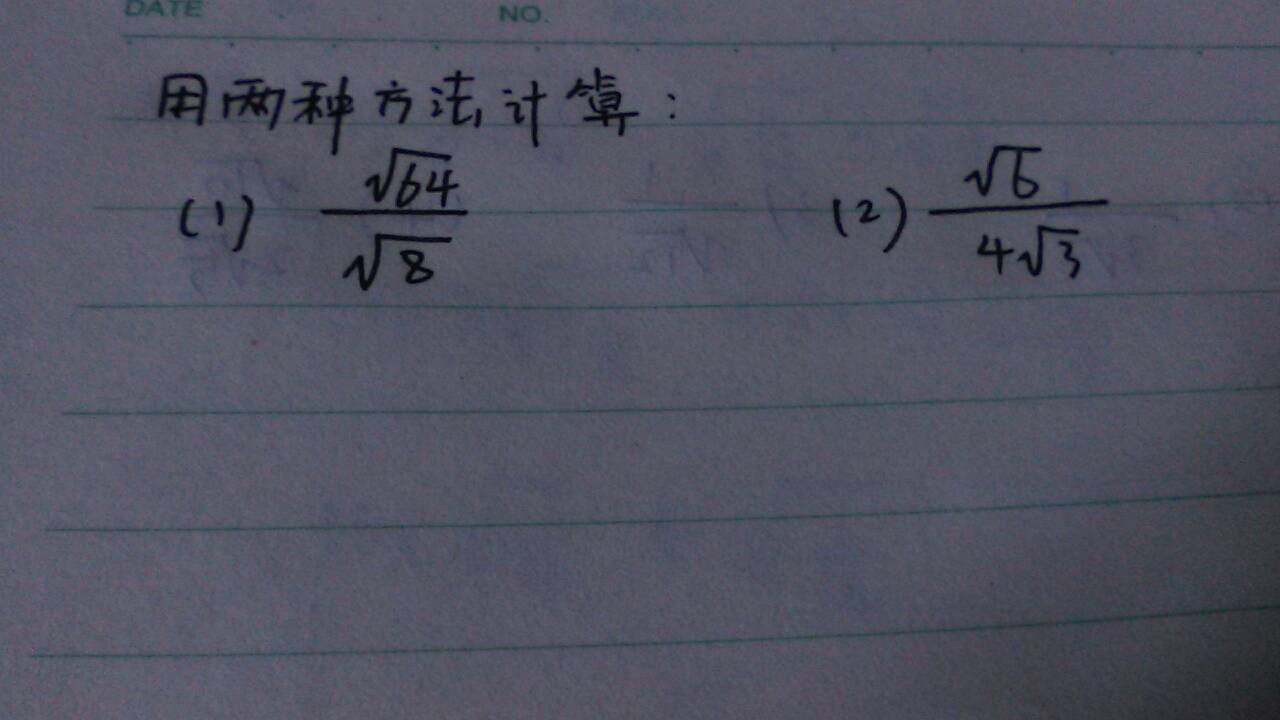 DATE NO.
用两种方法计算:
(1) √64/√8 (2) √6/4√3